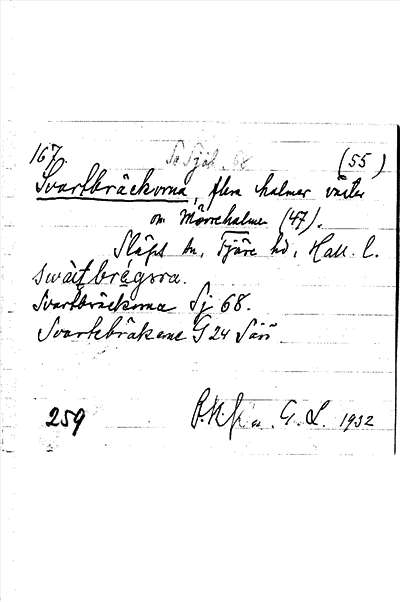 167. Se Sjök. 68 (55)
Svartbräckorna, flera holmar väster
om Mörreholme (47).
Släps sn, Fjäre hd, Hall. l.
swàtbrègora.
Svartbräckorna Sj 68.
Svartebräkorne G 24 Särö
259 G. L. 1932